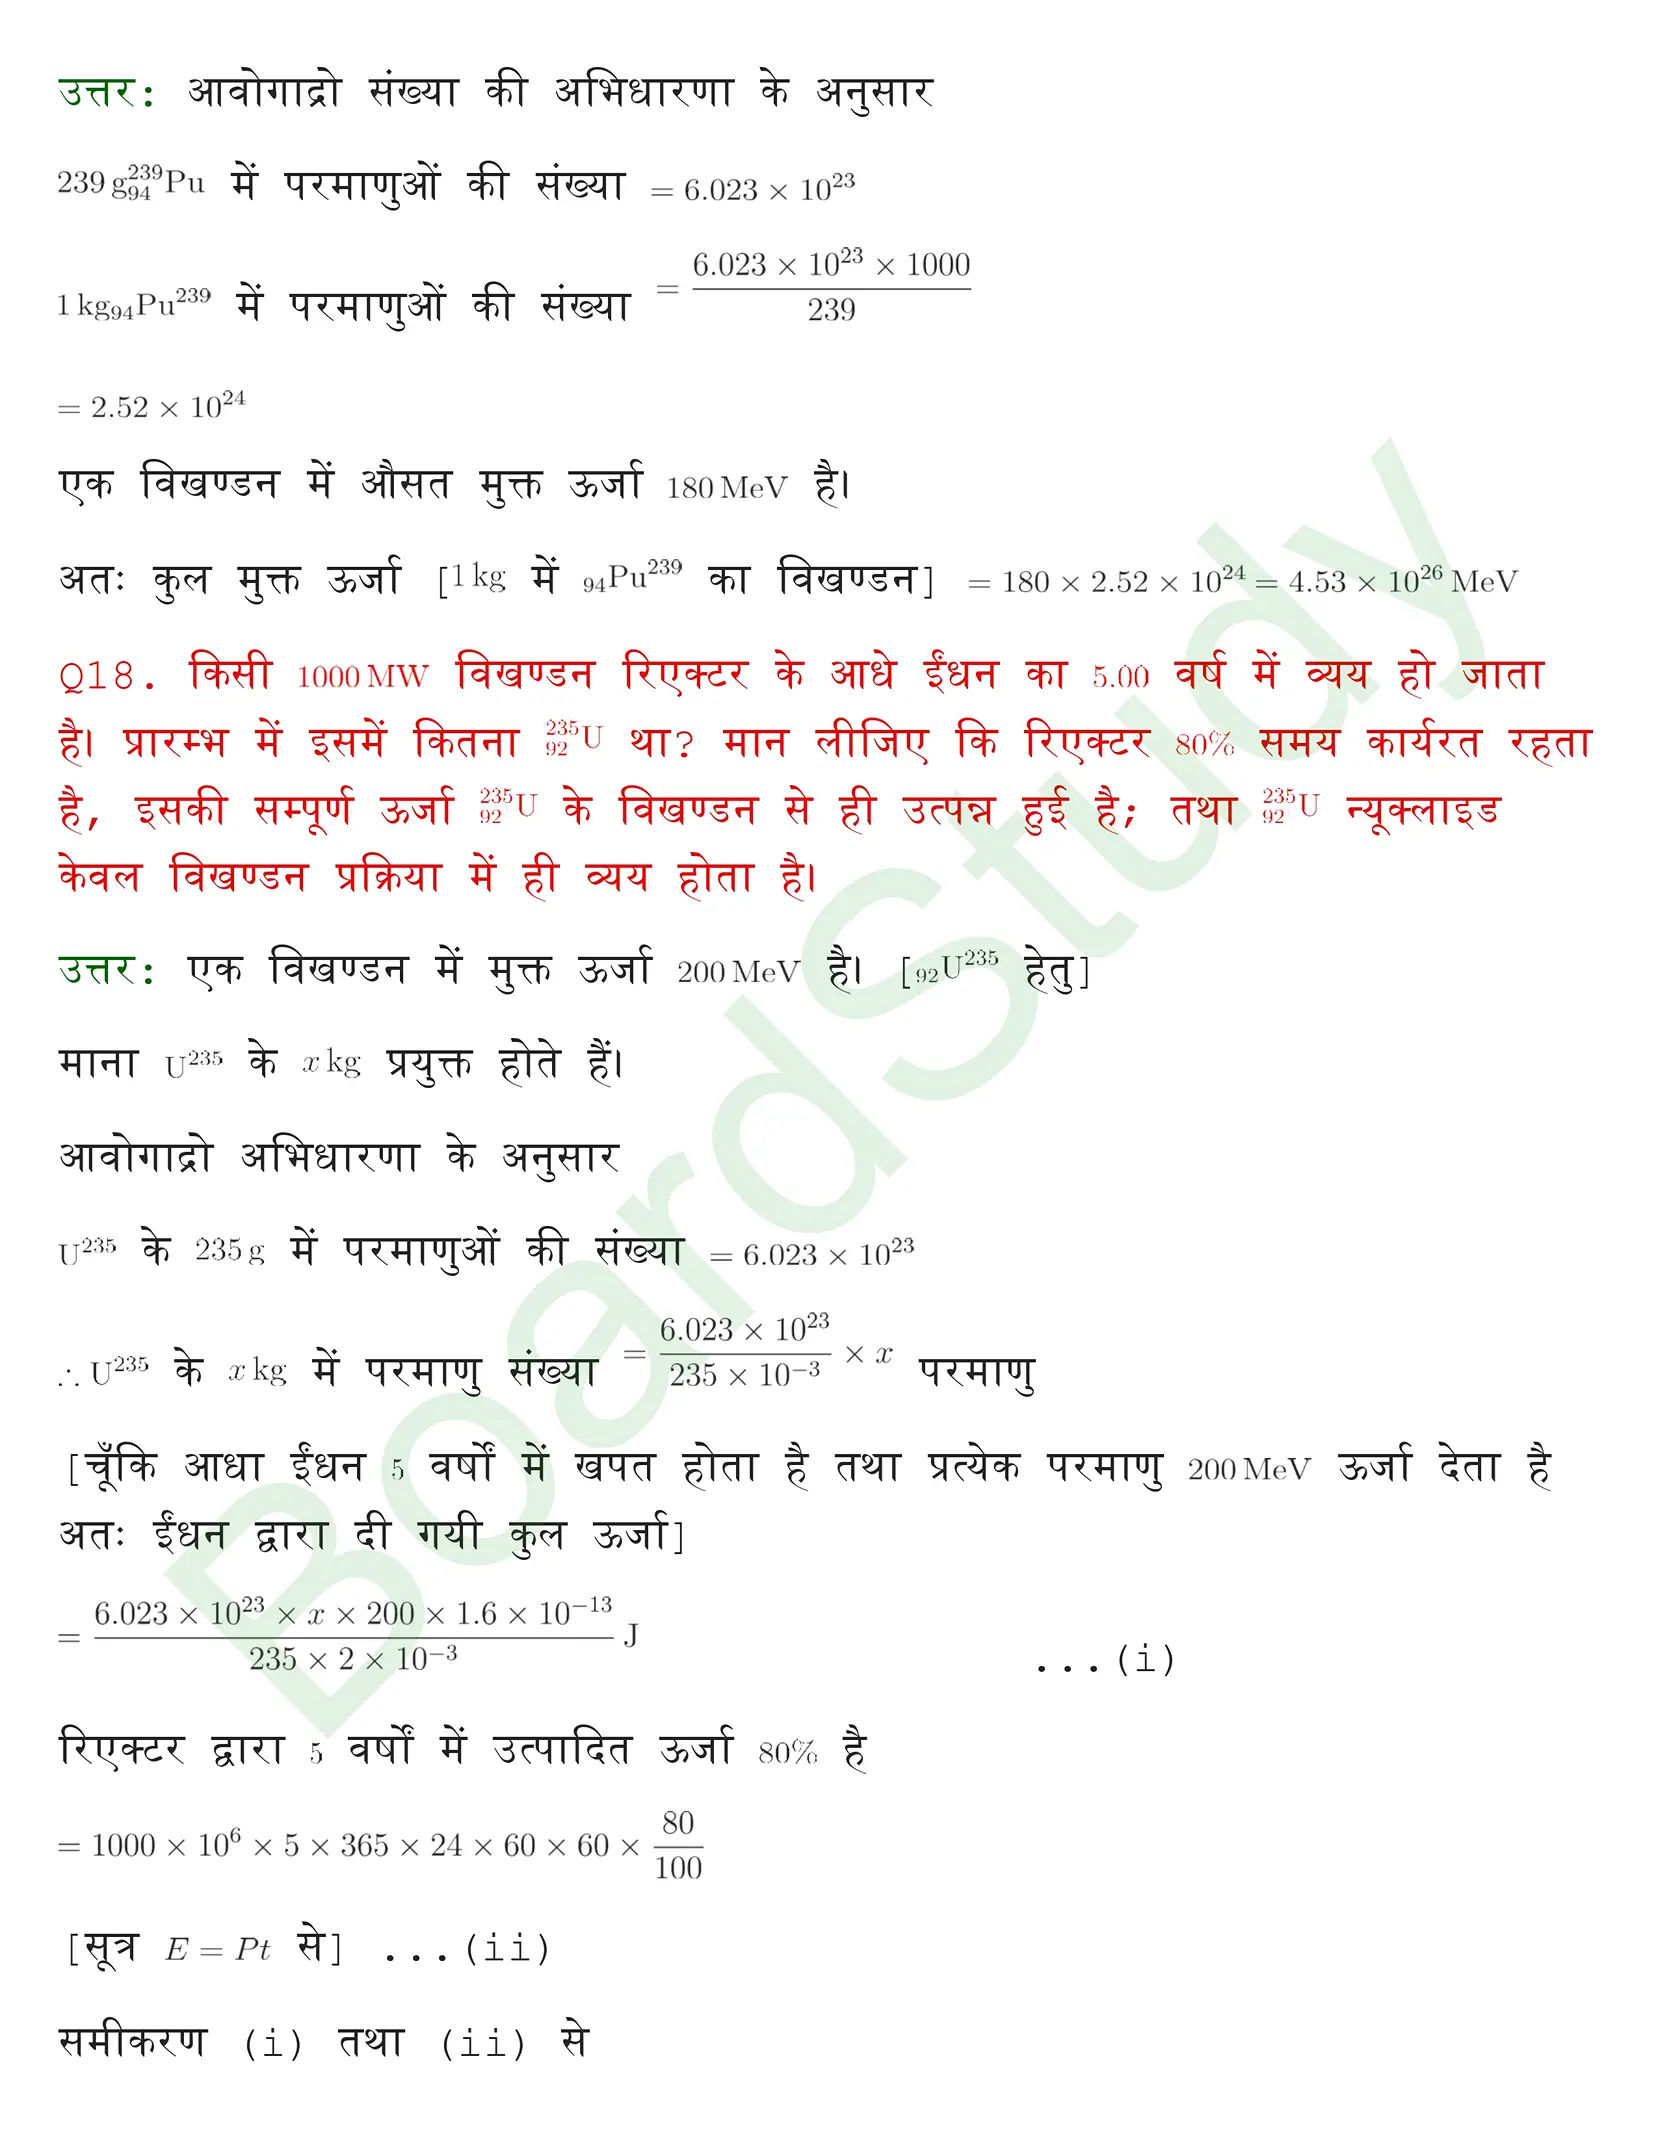 उत्तर: आवोगाद्रो संख्या की अभिधारणा के अनुसार
239 g²³⁹₉₄Pu में परमाणुओं की संख्या = 6.023 × 10²³
1 kg₉₄Pu²³⁹ में परमाणुओं की संख्या = (6.023 × 10²³ × 1000)/239
= 2.52 × 10²⁴
एक विखण्डन में औसत मुक्त ऊर्जा 180 MeV है।
अतः कुल मुक्त ऊर्जा [1 kg में ₉₄Pu²³⁹ का विखण्डन] = 180 × 2.52 × 10²⁴ = 4.53 × 10²⁶ MeV
Q18. किसी 1000 MW विखण्डन रिएक्टर के आधे ईंधन का 5.00 वर्ष में व्यय हो जाता
है। प्रारम्भ में इसमें कितना ²³⁵₉₂U था? मान लीजिए कि रिएक्टर 80% समय कार्यरत रहता
है, इसकी सम्पूर्ण ऊर्जा ²³⁵₉₂U के विखण्डन से ही उत्पन्न हुई है; तथा ²³⁵₉₂U न्यूक्लाइड
केवल विखण्डन प्रक्रिया में ही व्यय होता है।
उत्तर: एक विखण्डन में मुक्त ऊर्जा 200 MeV है। [₉₂U²³⁵ हेतु]
माना U²³⁵ के x kg प्रयुक्त होते हैं।
आवोगाद्रो अभिधारणा के अनुसार
U²³⁵ के 235 g में परमाणुओं की संख्या = 6.023 × 10²³
∴ U²³⁵ के x kg में परमाणु संख्या = (6.023 × 10²³)/(235 × 10⁻³) × x परमाणु
[चूँकि आधा ईंधन 5 वर्षों में खपत होता है तथा प्रत्येक परमाणु 200 MeV ऊर्जा देता है
अतः ईंधन द्वारा दी गयी कुल ऊर्जा]
= (6.023 × 10²³ × x × 200 × 1.6 × 10⁻¹³)/(235 × 2 × 10⁻³) J ...(i)
रिएक्टर द्वारा 5 वर्षों में उत्पादित ऊर्जा 80% है
= 1000 × 10⁶ × 5 × 365 × 24 × 60 × 60 × 80/100
[सूत्र E = Pt से] ...(ii)
समीकरण (i) तथा (ii) से
BoardStudy